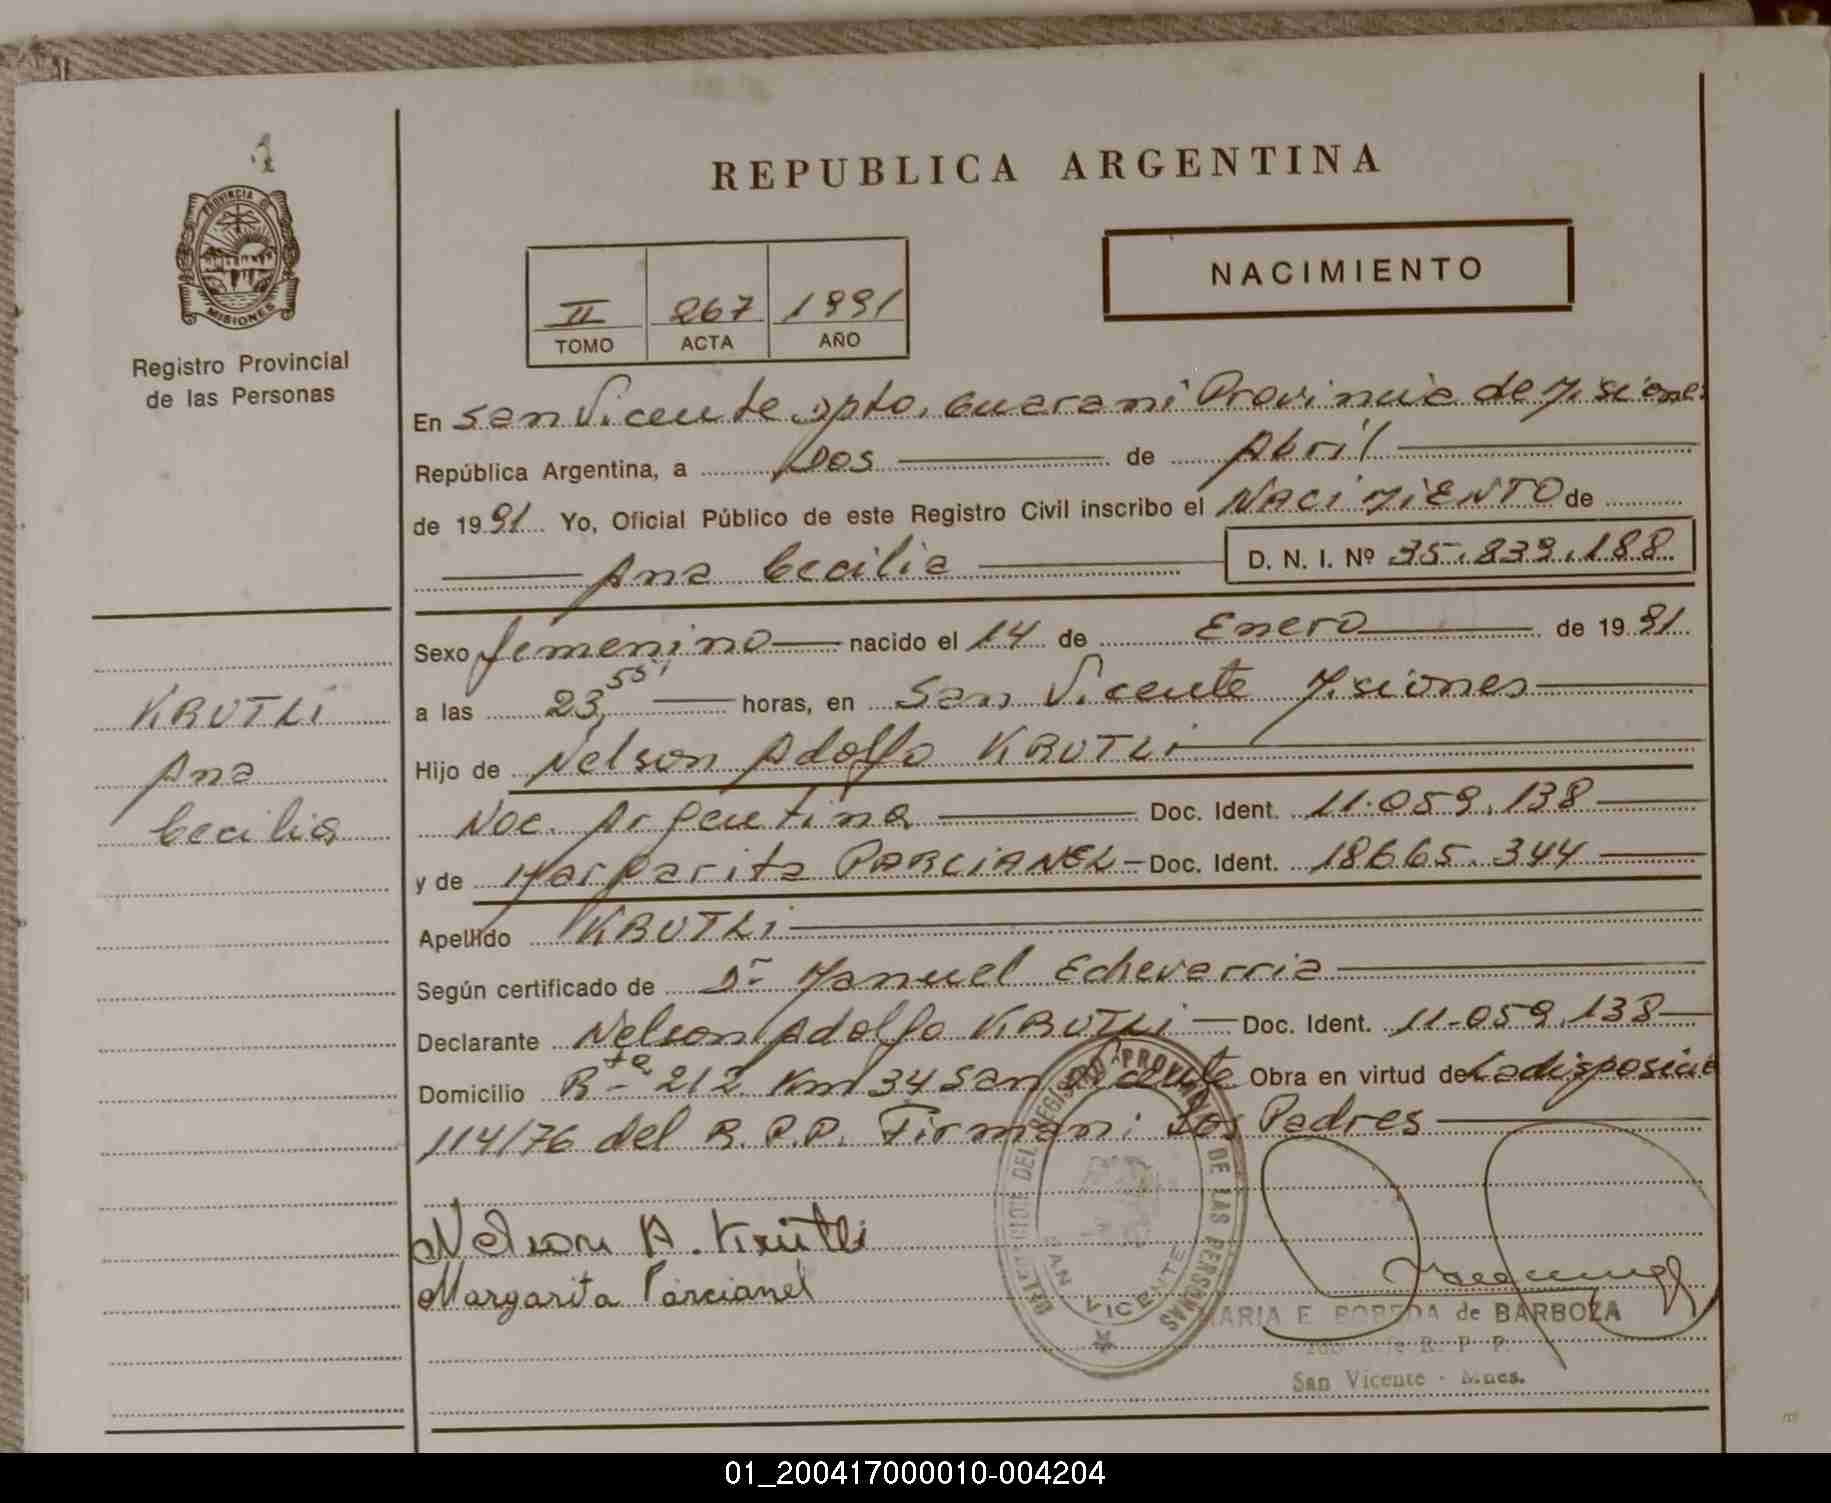 1
PROVINCIA DE
MISIONES
Registro Provincial
de las Personas
KRUTLI
Ana
Cecilia
REPUBLICA ARGENTINA
NACIMIENTO
II 267 1991
TOMO ACTA AÑO
En San Vicente Dpto. Guarani Provincia de Misiones
República Argentina, a Dos de Abril
de 1991 Yo, Oficial Público de este Registro Civil inscribo el NACIMIENTO de
Ana Cecilia D. N. I. Nº 35.839.188
Sexo femenino nacido el 14 de Enero de 1991
a las 23,55' horas, en San Vicente Misiones
Hijo de Nelson Adolfo KRUTLI
Nac. Argentina Doc. Ident. 11.059.138
y de Margarita PARCIANEL Doc. Ident. 18665.344
Apellido KRUTLI
Según certificado de Dr Manuel Echevarria
Declarante Nelson Adolfo KRUTLI Doc. Ident. 11.059.138
Domicilio Rta 212 Km 34 San Vicente Obra en virtud de La disposició
114/76 del R.P.P. Firman: Los Padres
Nelson A. Krütli
Margarita Parcianel
DEL REGISTRO PROVINCIAL DE LAS PERSONAS
SAN VICENTE
MARIA E. de BARBOZA
R. P. P.
San Vicente - Mnes.
01_200417000010-004204